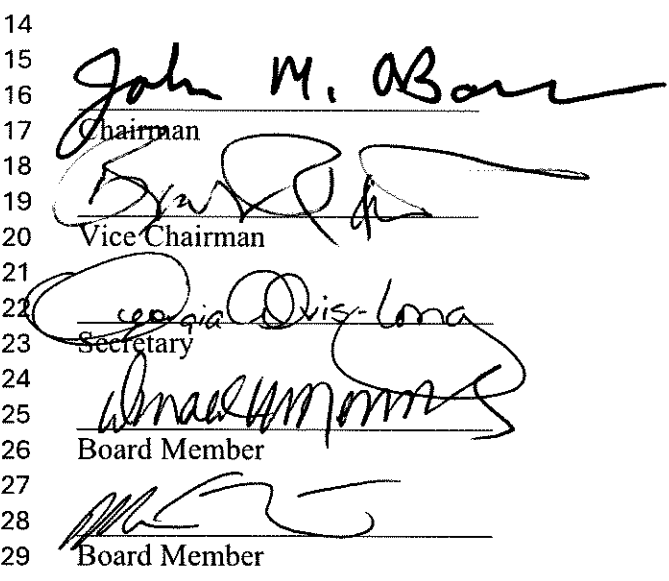 14
15
16 John M.
17 Chairman
18
19
20 Vice Chairman
21
22 Georgia Davis-Long
23 Secretary
24
25
26 Board Member
27
28
29 Board Member